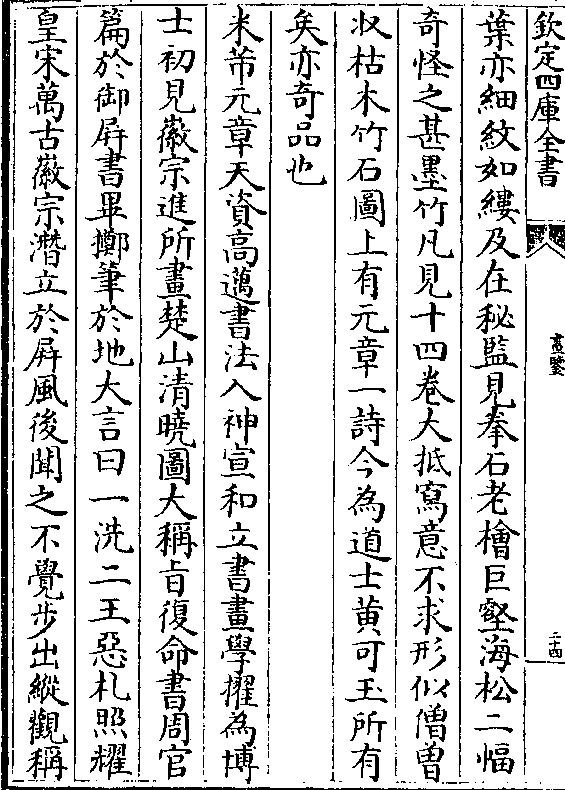 欽定四庫全書
畫鑒
二十四
葉亦細紋如縷及在秘監見拳石老檜巨壑海松二幅
奇怪之甚墨竹凡見十四卷大抵寫意不求形似僧曽
收枯木竹石圖上有元章一詩今為道士黄可玉所有
矣亦奇品也
米芾元章天資高邁書法入神宣和立書畫學擢為博
士初見徽宗進所畫楚山清曉圖大稱㫖復命書周官
篇於御屏書畢擲筆於地大言曰一洗二王惡札照耀
皇宋萬古徽宗潛立於屏風後聞之不覺步出縱觀稱